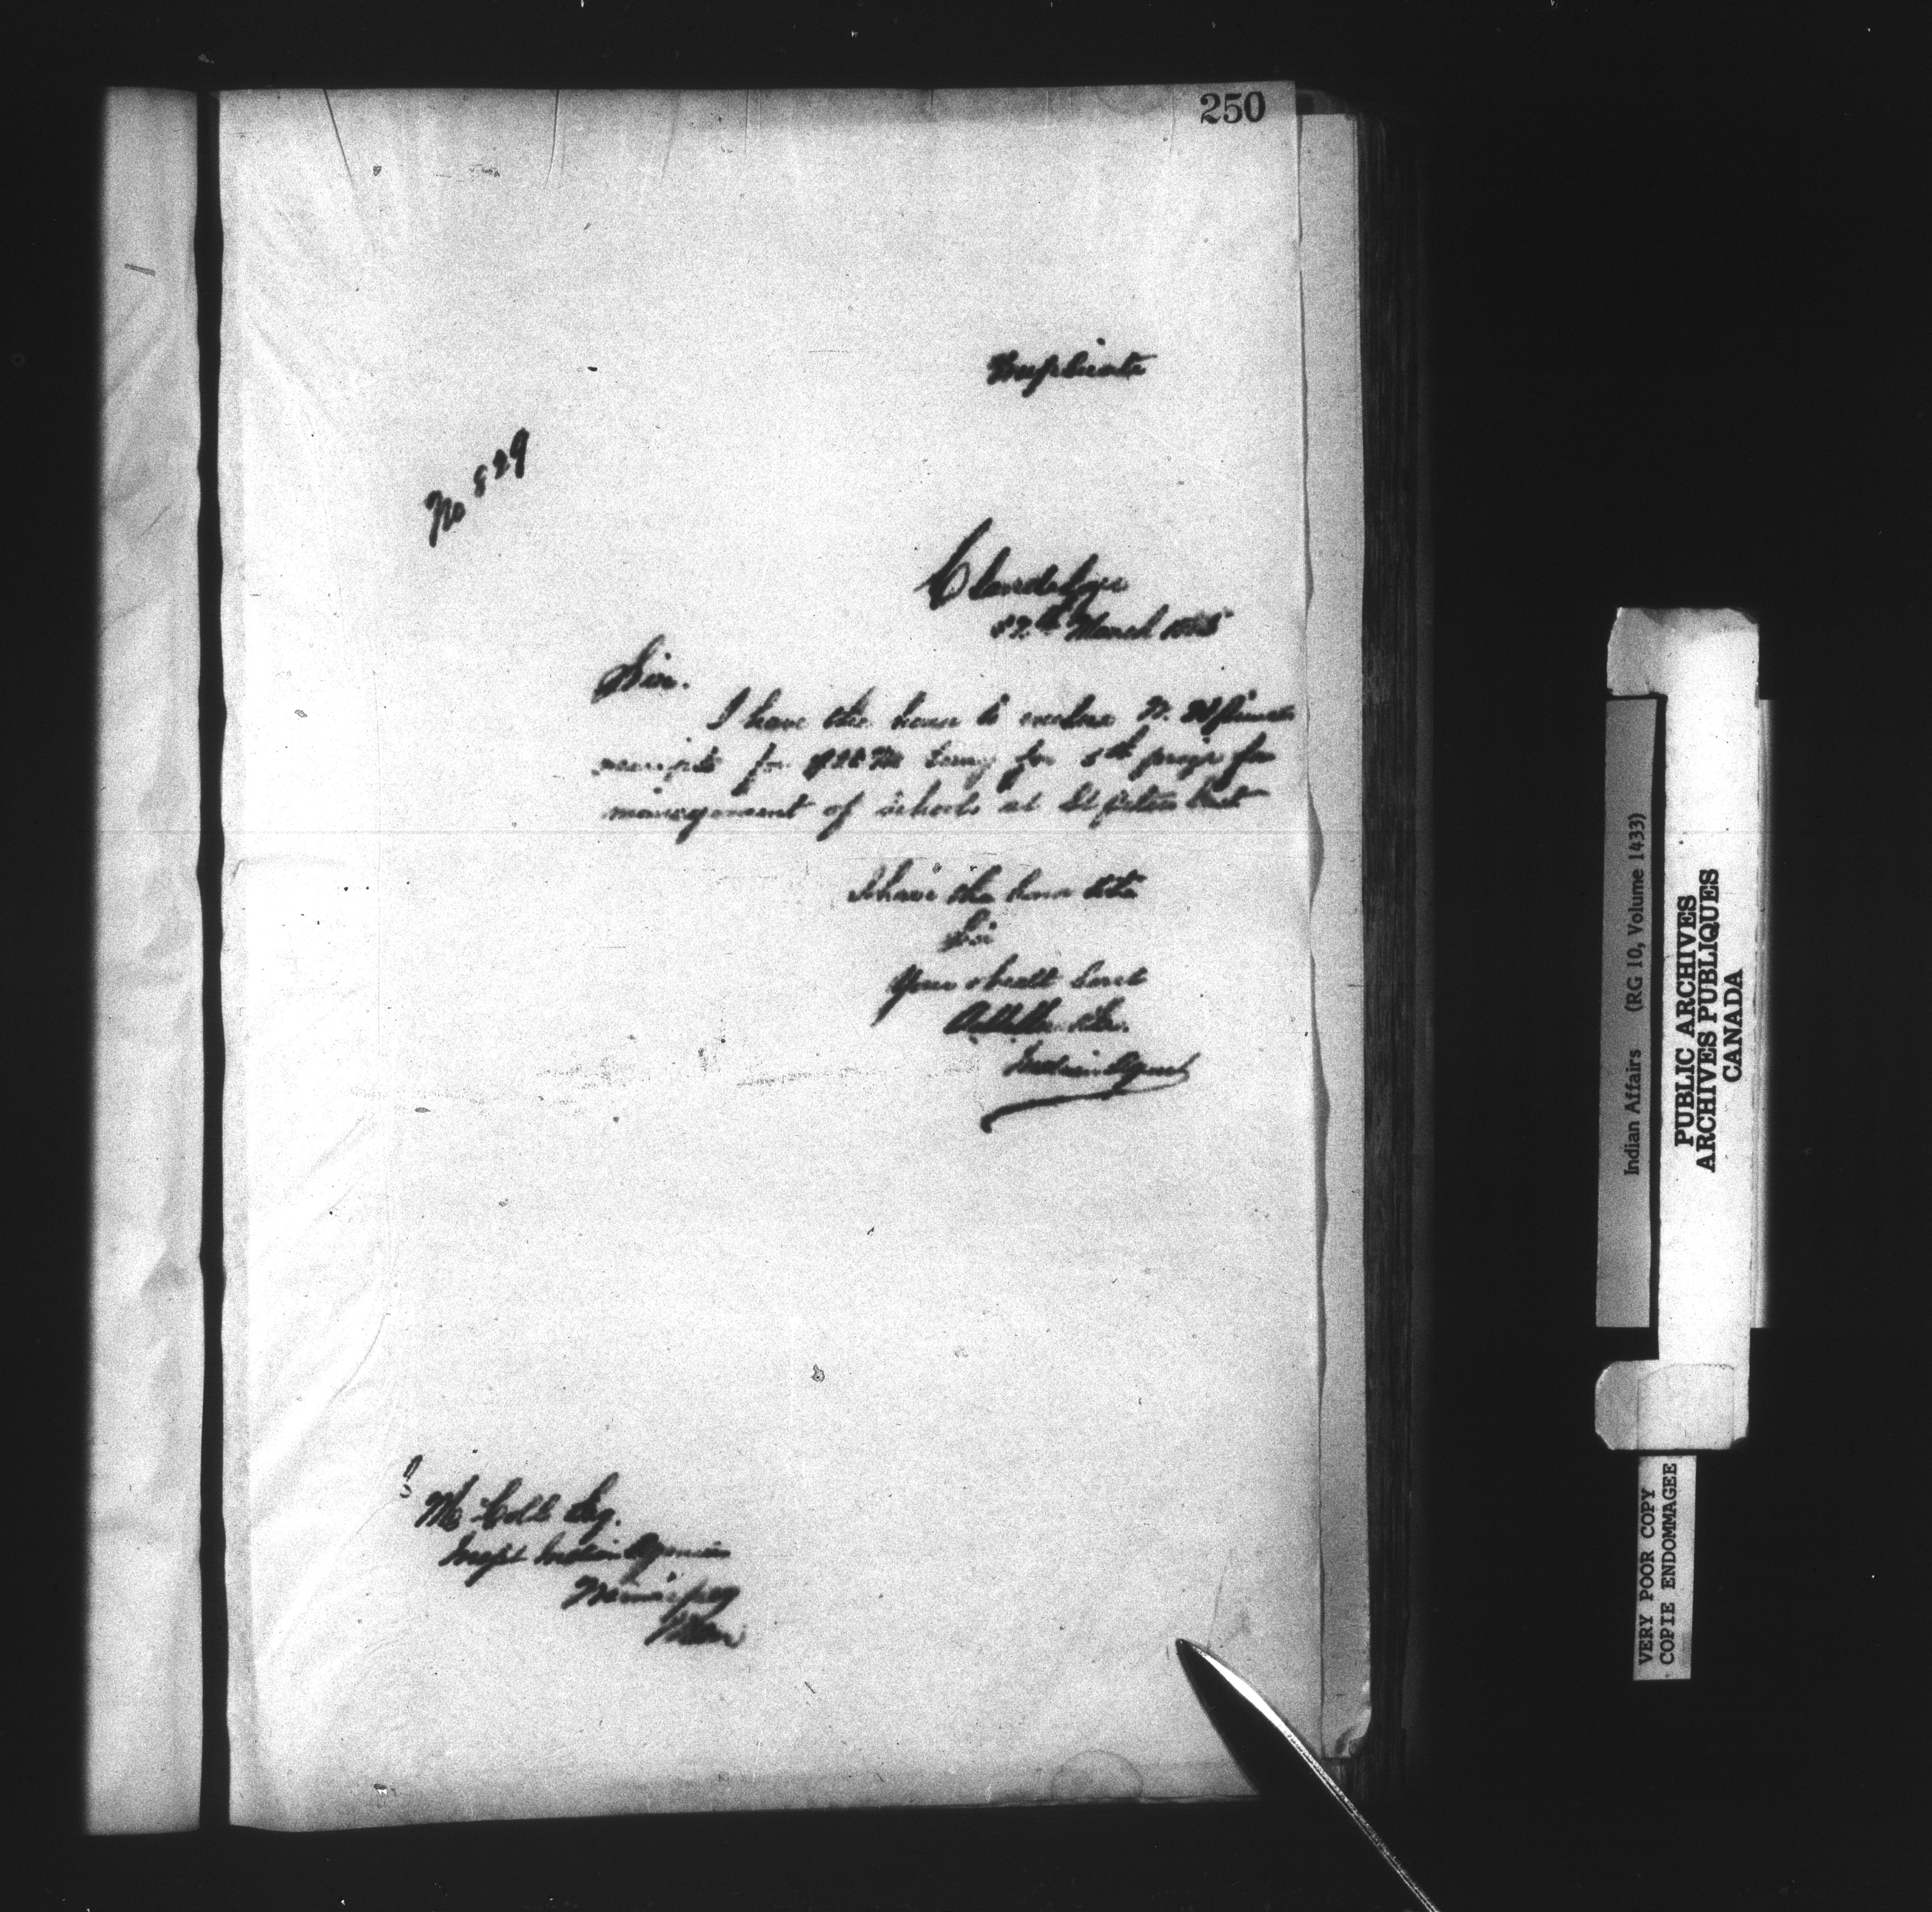 250
Duplicate
No 829
Clandeboye
27th March
Sir.
I have the honor to enclose
receipts for for 5th prize for
management of schools at St Peters
I have the honor to be
Sir
Your obedt Servt
Indian Agent
E
McColl Esq.
Inspt Indian Agencies
Winnipeg
Man
Indian Affairs (RG 10, Volume 1433)
PUBLIC ARCHIVES
ARCHIVES PUBLIQUES
CANADA
VERY POOR COPY
COPIE ENDOMMAGEE